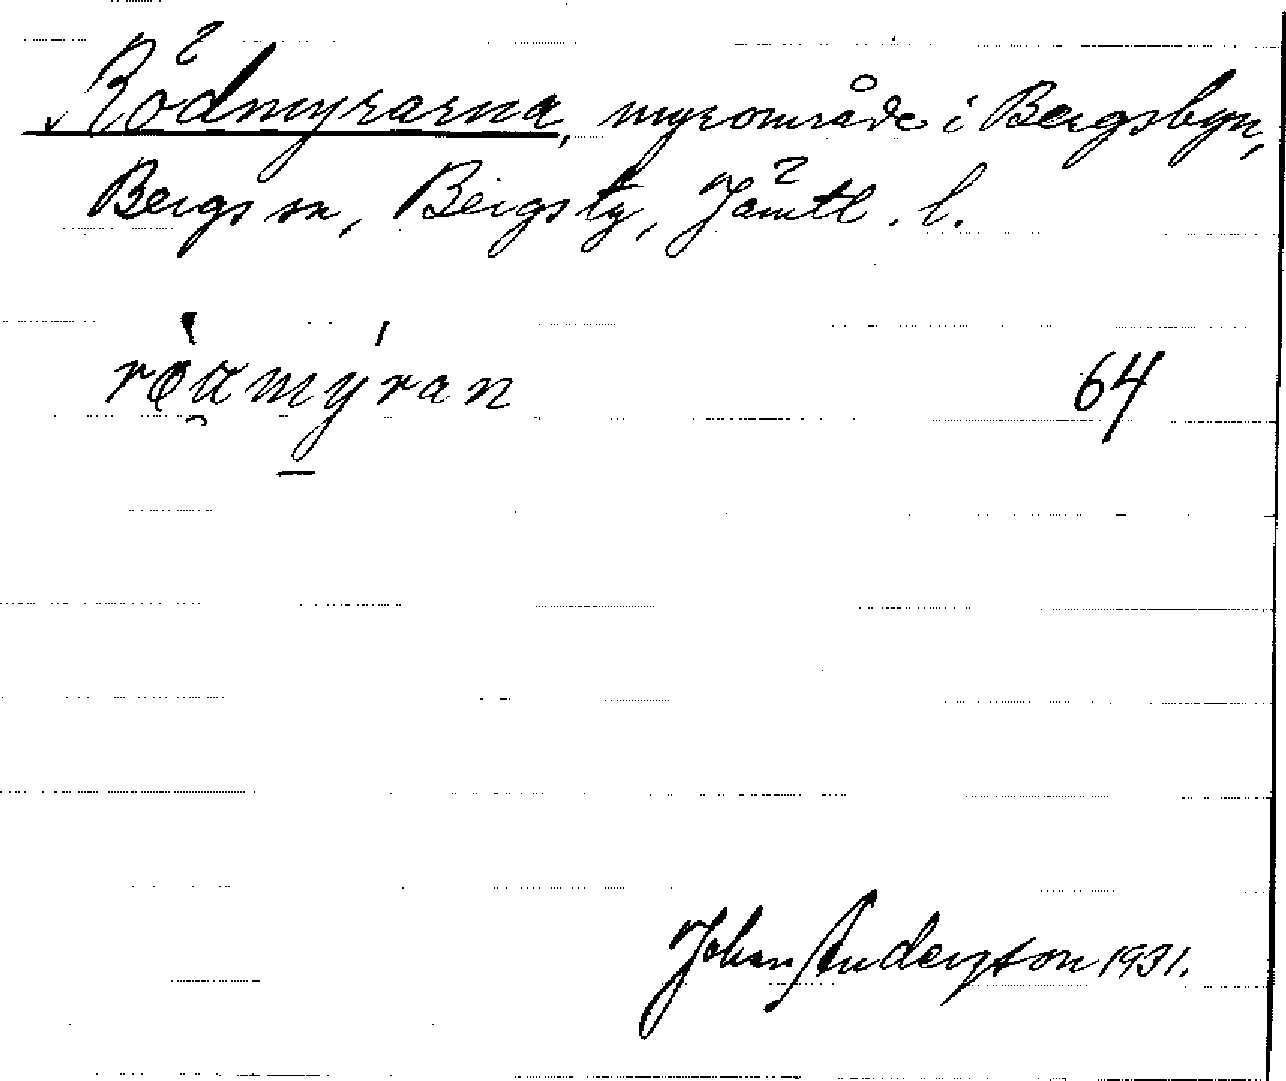 Rödmyrarna, myrområde i Bergsbyn,
Bergs sn, Bergs tg, Jämtl. l.
64
Johan Anderzson 1931.